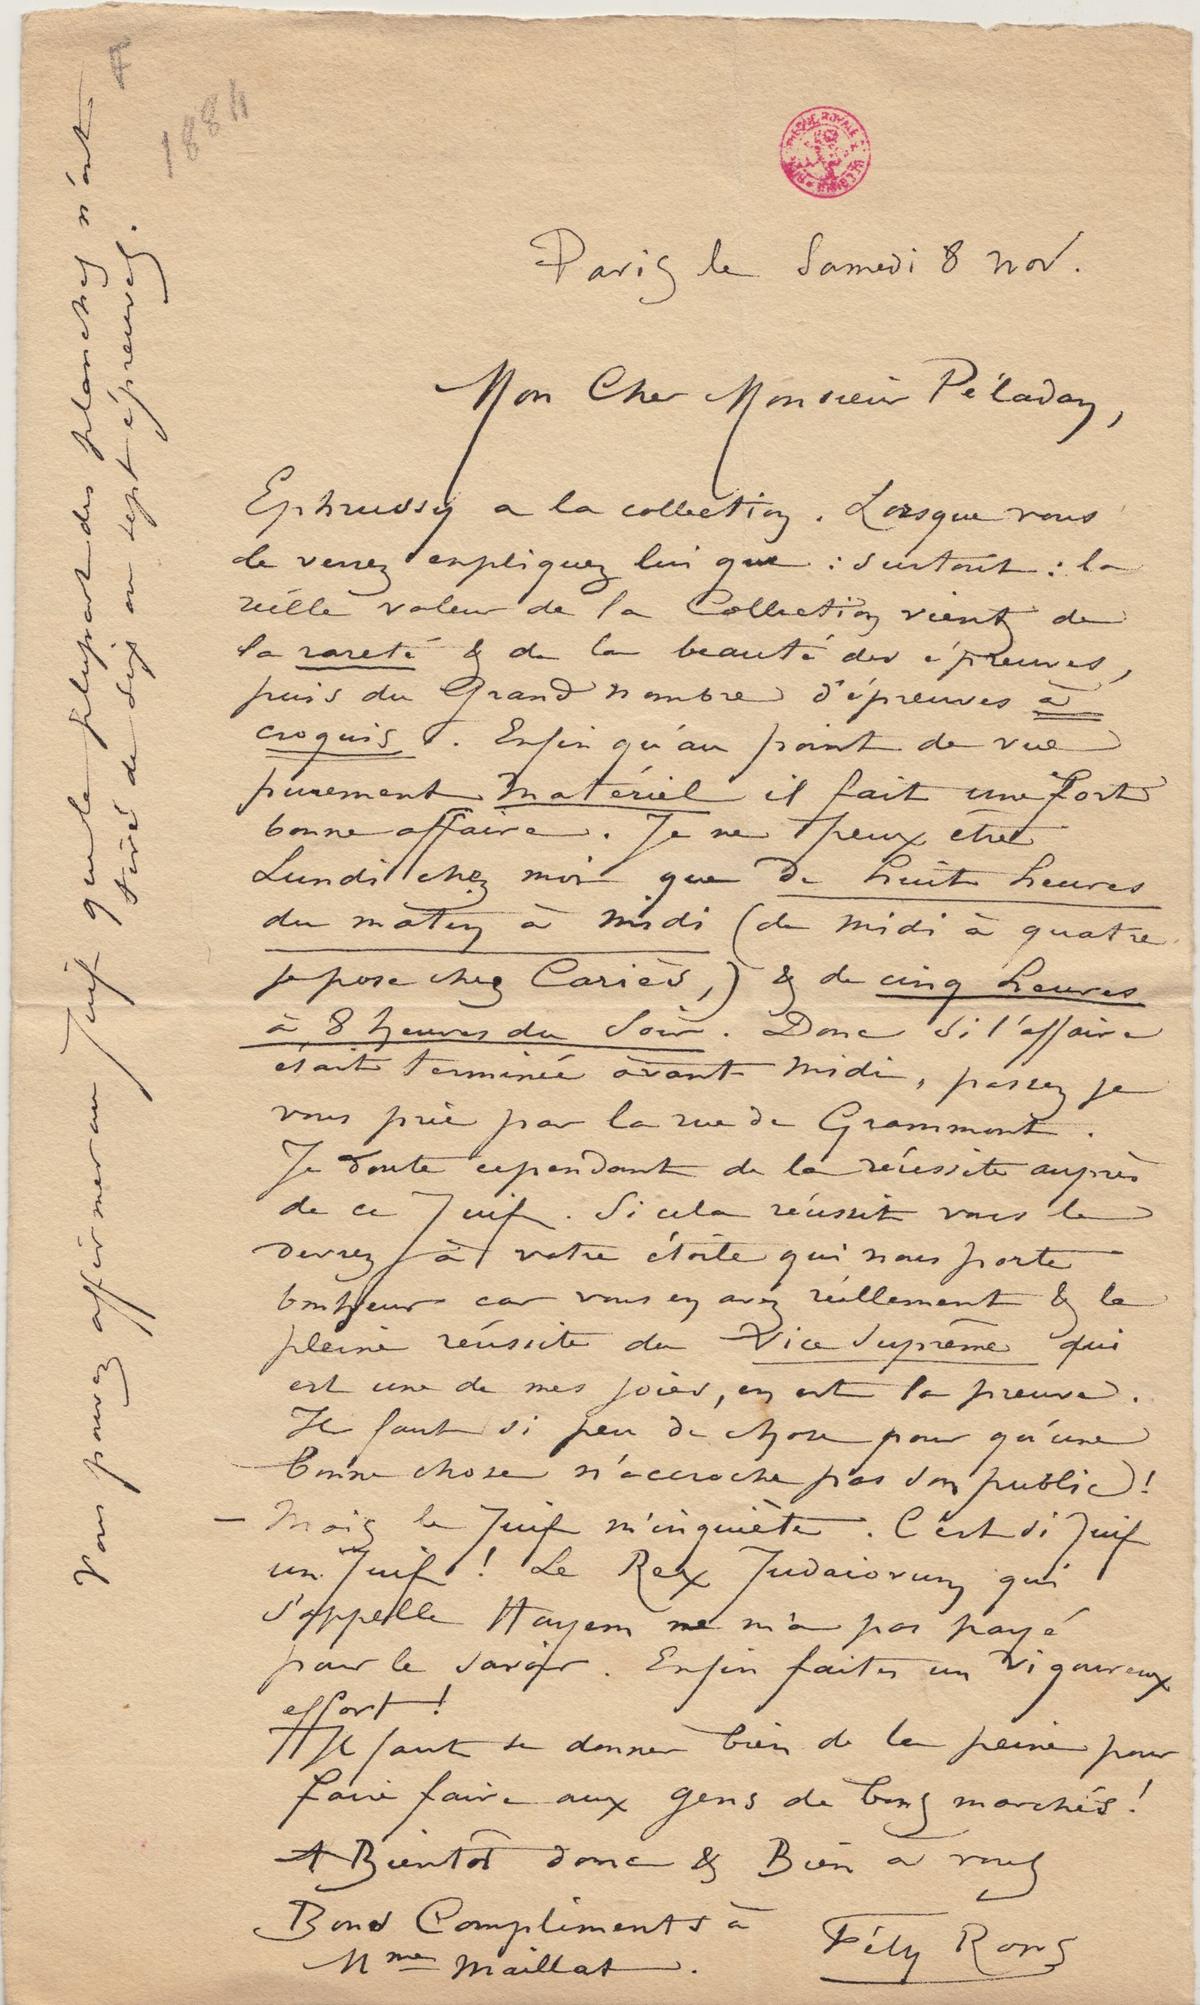 F
1884
Paris le Samedi 8 nov.
Mon Cher Monsieur Péladan,
Ephrussy a la collection. Lorsque vous
le verrez expliquez lui que : surtout : la
réélle valeur de la Collection vient de
la rareté & de la beauté des épreuves,
puis du Grand nombre d'épreuves à
croquis. Enfin qu'au point de vue
purement matériel il fait une fort
bonne affaire. Je ne peux être
Lundi chez moi que de huit heures
du matin à midi (de midi à quatre
je pose chez Cariès,) & de cinq heures
à 8 heures du Soir. Donc si l'affaire
était terminée avant midi, passez je
vous prie par la rue de Grammont.
Je doute cependant de la réussite auprès
de ce Juif. Si cela réussit vous le
devrez à votre étoile qui nous porte
bonheur car vous en avez réellement & la
pleine réussite du Vice Suprême qui
est une de mes joies, en est la preuve.
Il faut si peu de chose pour qu'une
bonne chose n'accroche pas son public!
– Mais le Juif m'inquiète. C'est si Juif
un Juif! Le Rex Judaiorum qui
s'appelle Hayem ne m'a pas payé
pour le savoir. Enfin faites un vigoureux
effort!
Il faut se donner bien de la peine pour
faire faire aux gens de bons marchés!
A Bientôt donc & Bien à vous
Bons Compliments à
Mme Maillat.
Fély Rops
Vous pouvez affirmer au Juif que la plupart des planches n'ont
tiré de six ou sept épreuves.